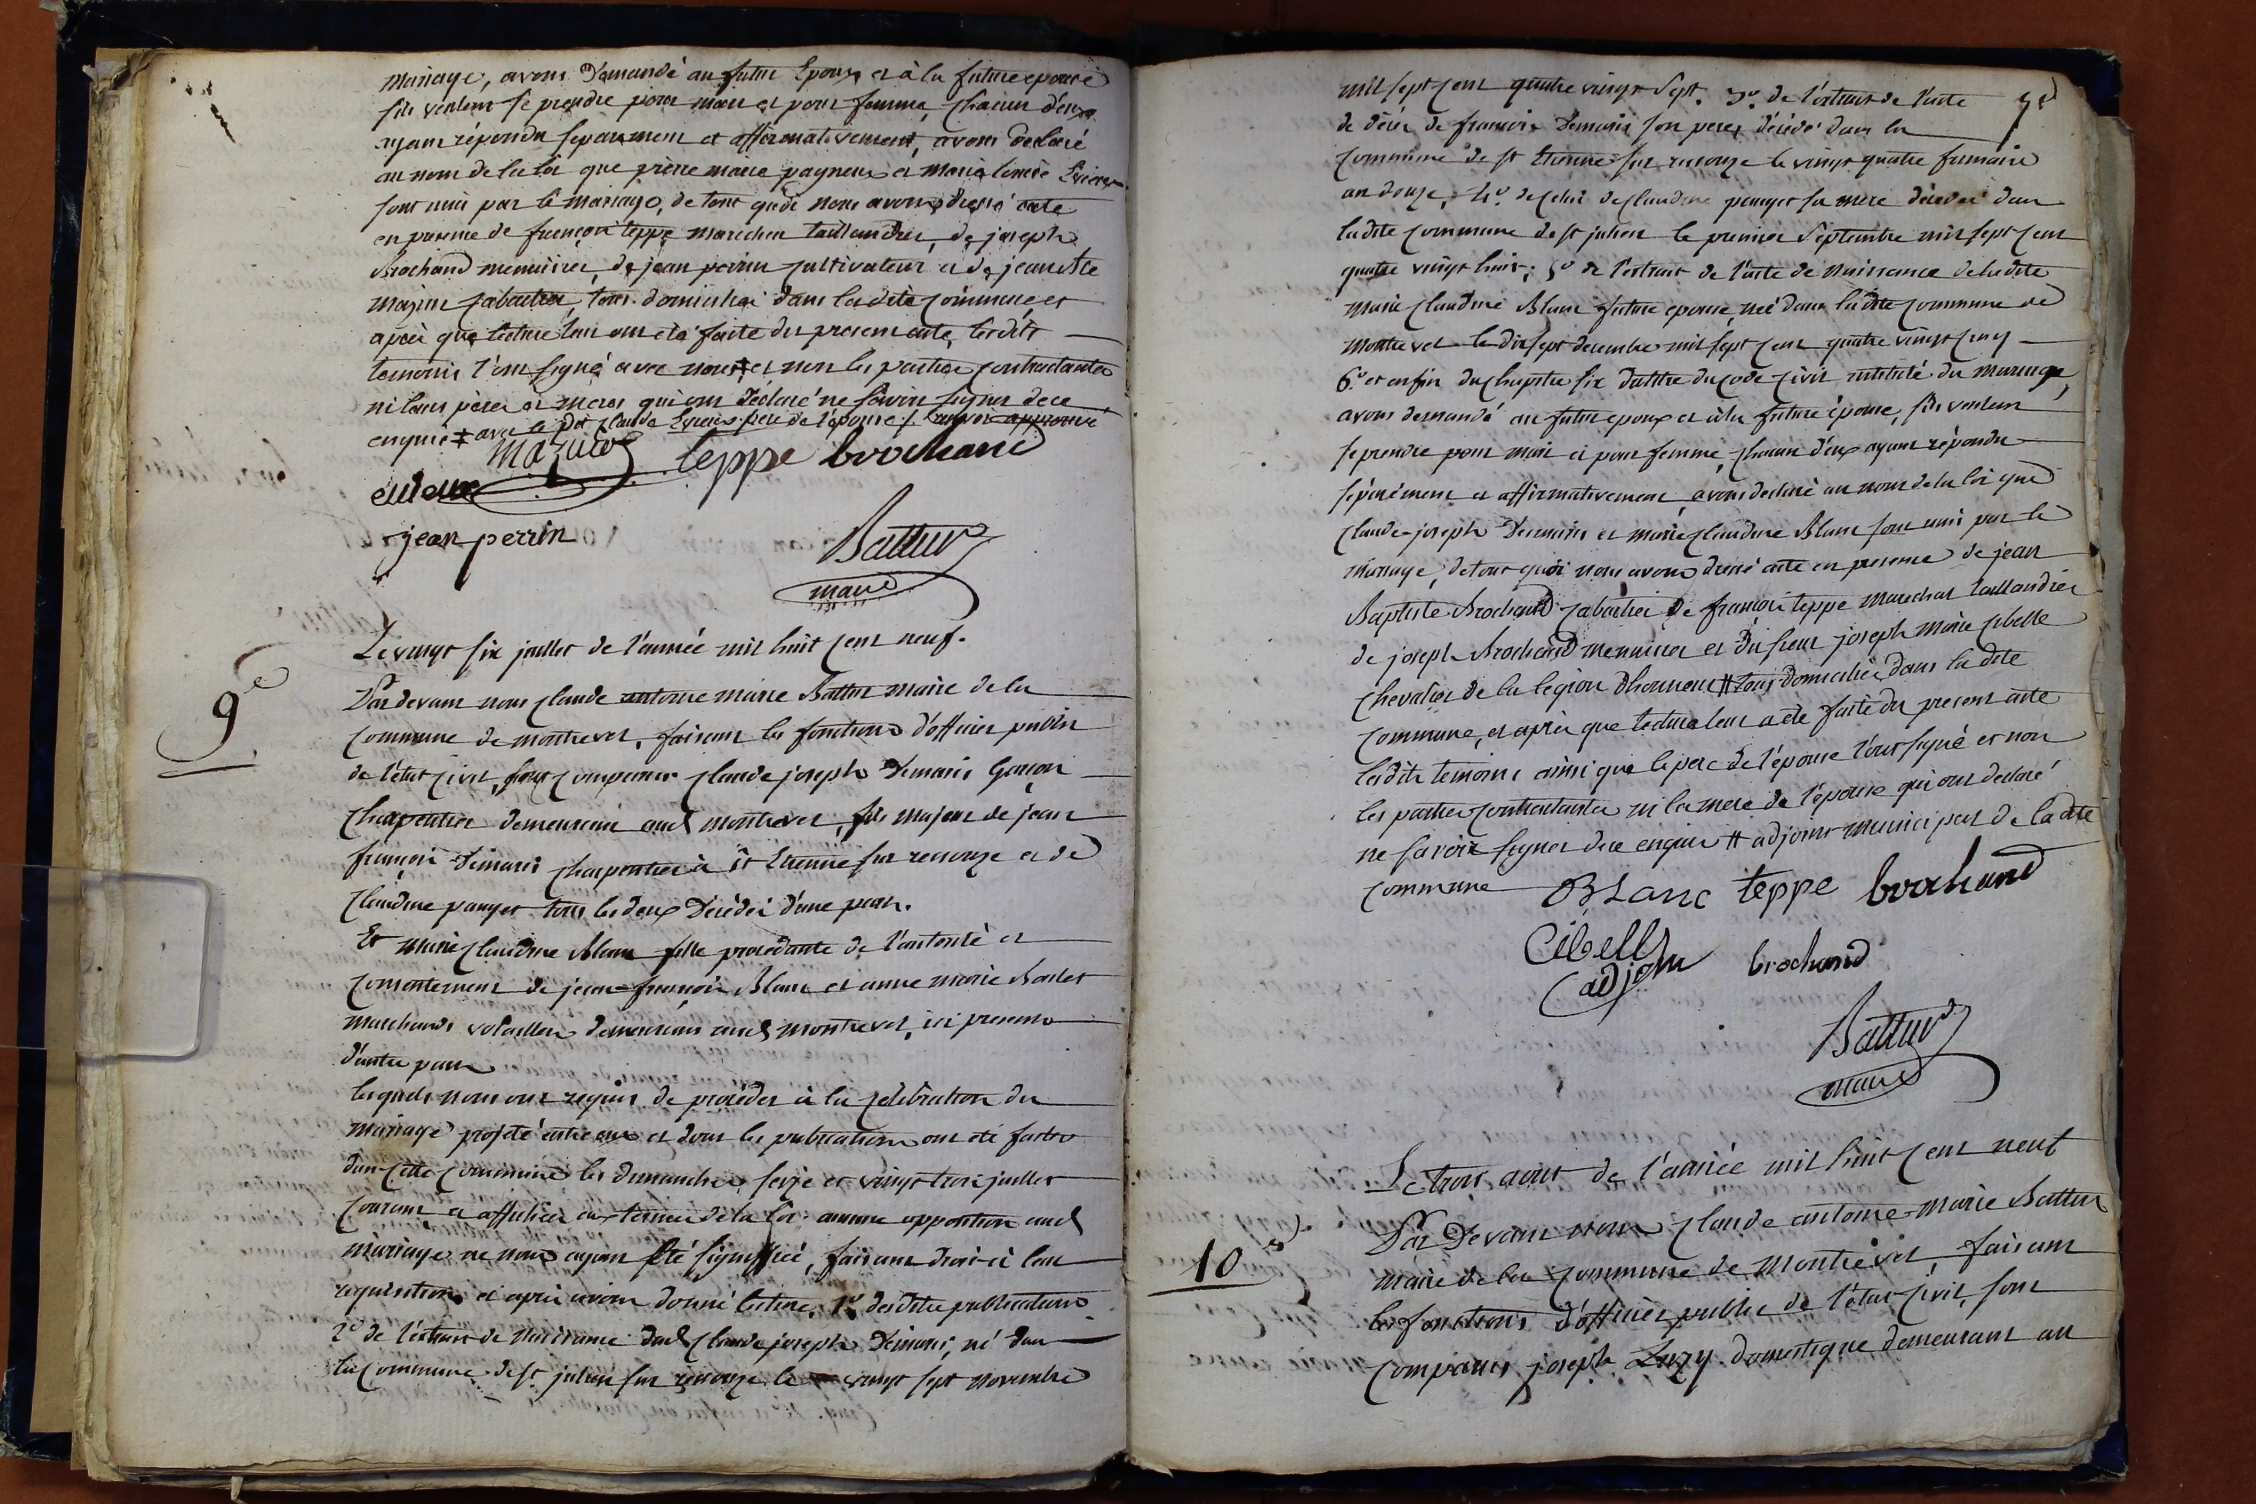 mariage, avons demandé au futur Epoux et à la future epouse
s'ils veulent se prendre pour mari et pour femme, chacun d'eux
ayant répondu separement et affirmativement, avons declaré
au nom de la loi que pierre marie pagneux et marie
sont unis par le mariage, de tout quoi nous avons dressé acte
en presence de françois teppe marechal taillandier, de joseph
Brochand menuisier, de jean perrin cultivateur et de jean Bte
mazuir cabaretier, tous domiciliés dans la dite commune, et
après que lecture leur ont été faite du present acte, lesdits
temoins l'ont signé avec nous ‡ et non les parties contractantes
ni leurs pères et meres qui ont déclaré ne savoir signer de ce
enquis ‡ avec le dit claude père de l'épouse /. renvoi approuvé
teppe brochand
jean perrin
Battur
maire
9e
Le vingt six juillet de l'année mil huit cent neuf.
Par devant nous claude antoine marie Battur maire de la
commune de montrevel, faisant les fonctions d'officier public
de l'état civil, sont comparus claude joseph Demaris Garçon
charpentier demeurant aud montrevel, fils majeur de jean
françois Demaris charpentier à St Etienne sur ressouze et de
claudine panget tous les deux décédés d'une part.
Et marie claudine Blanc fille procédante de l'autorité et
consentement de jean-françois Blanc et anne marie
marchands volaillers demeurans aud montrevel, ici presents
d'autre part
lesquels nous ont requis de procéder à la celebration du
mariage projeté entre eux et dont les publications ont été faites
dans cette commune les dimanches seize et vingt trois juillet
courant et affichées aux termes de la loi; aucune opposition aud
mariage ne nous ayant été signiffiée, faisant droit à leur
requisition, et après avoir donné lecture, 1° des dites publications
2° de l'extrait de naissance dud claude joseph Demaris, né dans
la commune de st julien sur ressouze le vingt sept novembre
mil sept cent quatre vingt sept. 3°. de l'extrait de l'acte
de décès de francois Demaris son pere, décédé dans la
commune de st Etienne sur ressouze le vingt quatre frimaire
an douze, 4°. de celui de claudine panget sa mere décédée dans
la dite commune de st julien le premier Septembre mil sept cent
quatre vingt huit; 5° de l'extrait de l'acte de naissance de la dite
marie claudine Blanc future epouse, née dans la dite commune de
montrevel le dix sept decembre mil sept cent quatre vingt cinq
6.° et enfin du chapitre six du titre du code civil intitulé du mariage,
avons demandé au futur epoux et à la future épouse, s'ils veulent
se prendre pour mari et pour femme, chacun d'eux ayant répondu
séparément et affirmativement, avons declaré au nom de la loi que
claude-joseph Demaris et marie claudine Blanc sont unis par le
mariage, de tout quoi nous avons dressé acte en presence de jean
Baptiste Brochand cabaretier de françois teppe marechal taillandier
de joseph Brochand menuisier et du sieur joseph marie cibelle
chevalier de la legion d'honneur # tous domiciliés dans la dite
commune, et après que lecture leur a été faite du present acte
lesdits temoins ainsi que le pere de l'épouse l'ont signé et non
les parties contractantes ni la mere de l'épouse qui ont declaré
ne savoir signer de ce enquis # adjoint municipal de la dite
commune
BLanc teppe brochand
Cibell
adjoin
brochand
Battur
maire
10e
Le trois aout de l'année mil huit cent neuf
Par Devant nous claude antoine-marie Battur
maire de la commune de Montrevel, faisant
les fonctions d'officier public de l'état civil, sont
comparus joseph Luzy domestique demeurant au